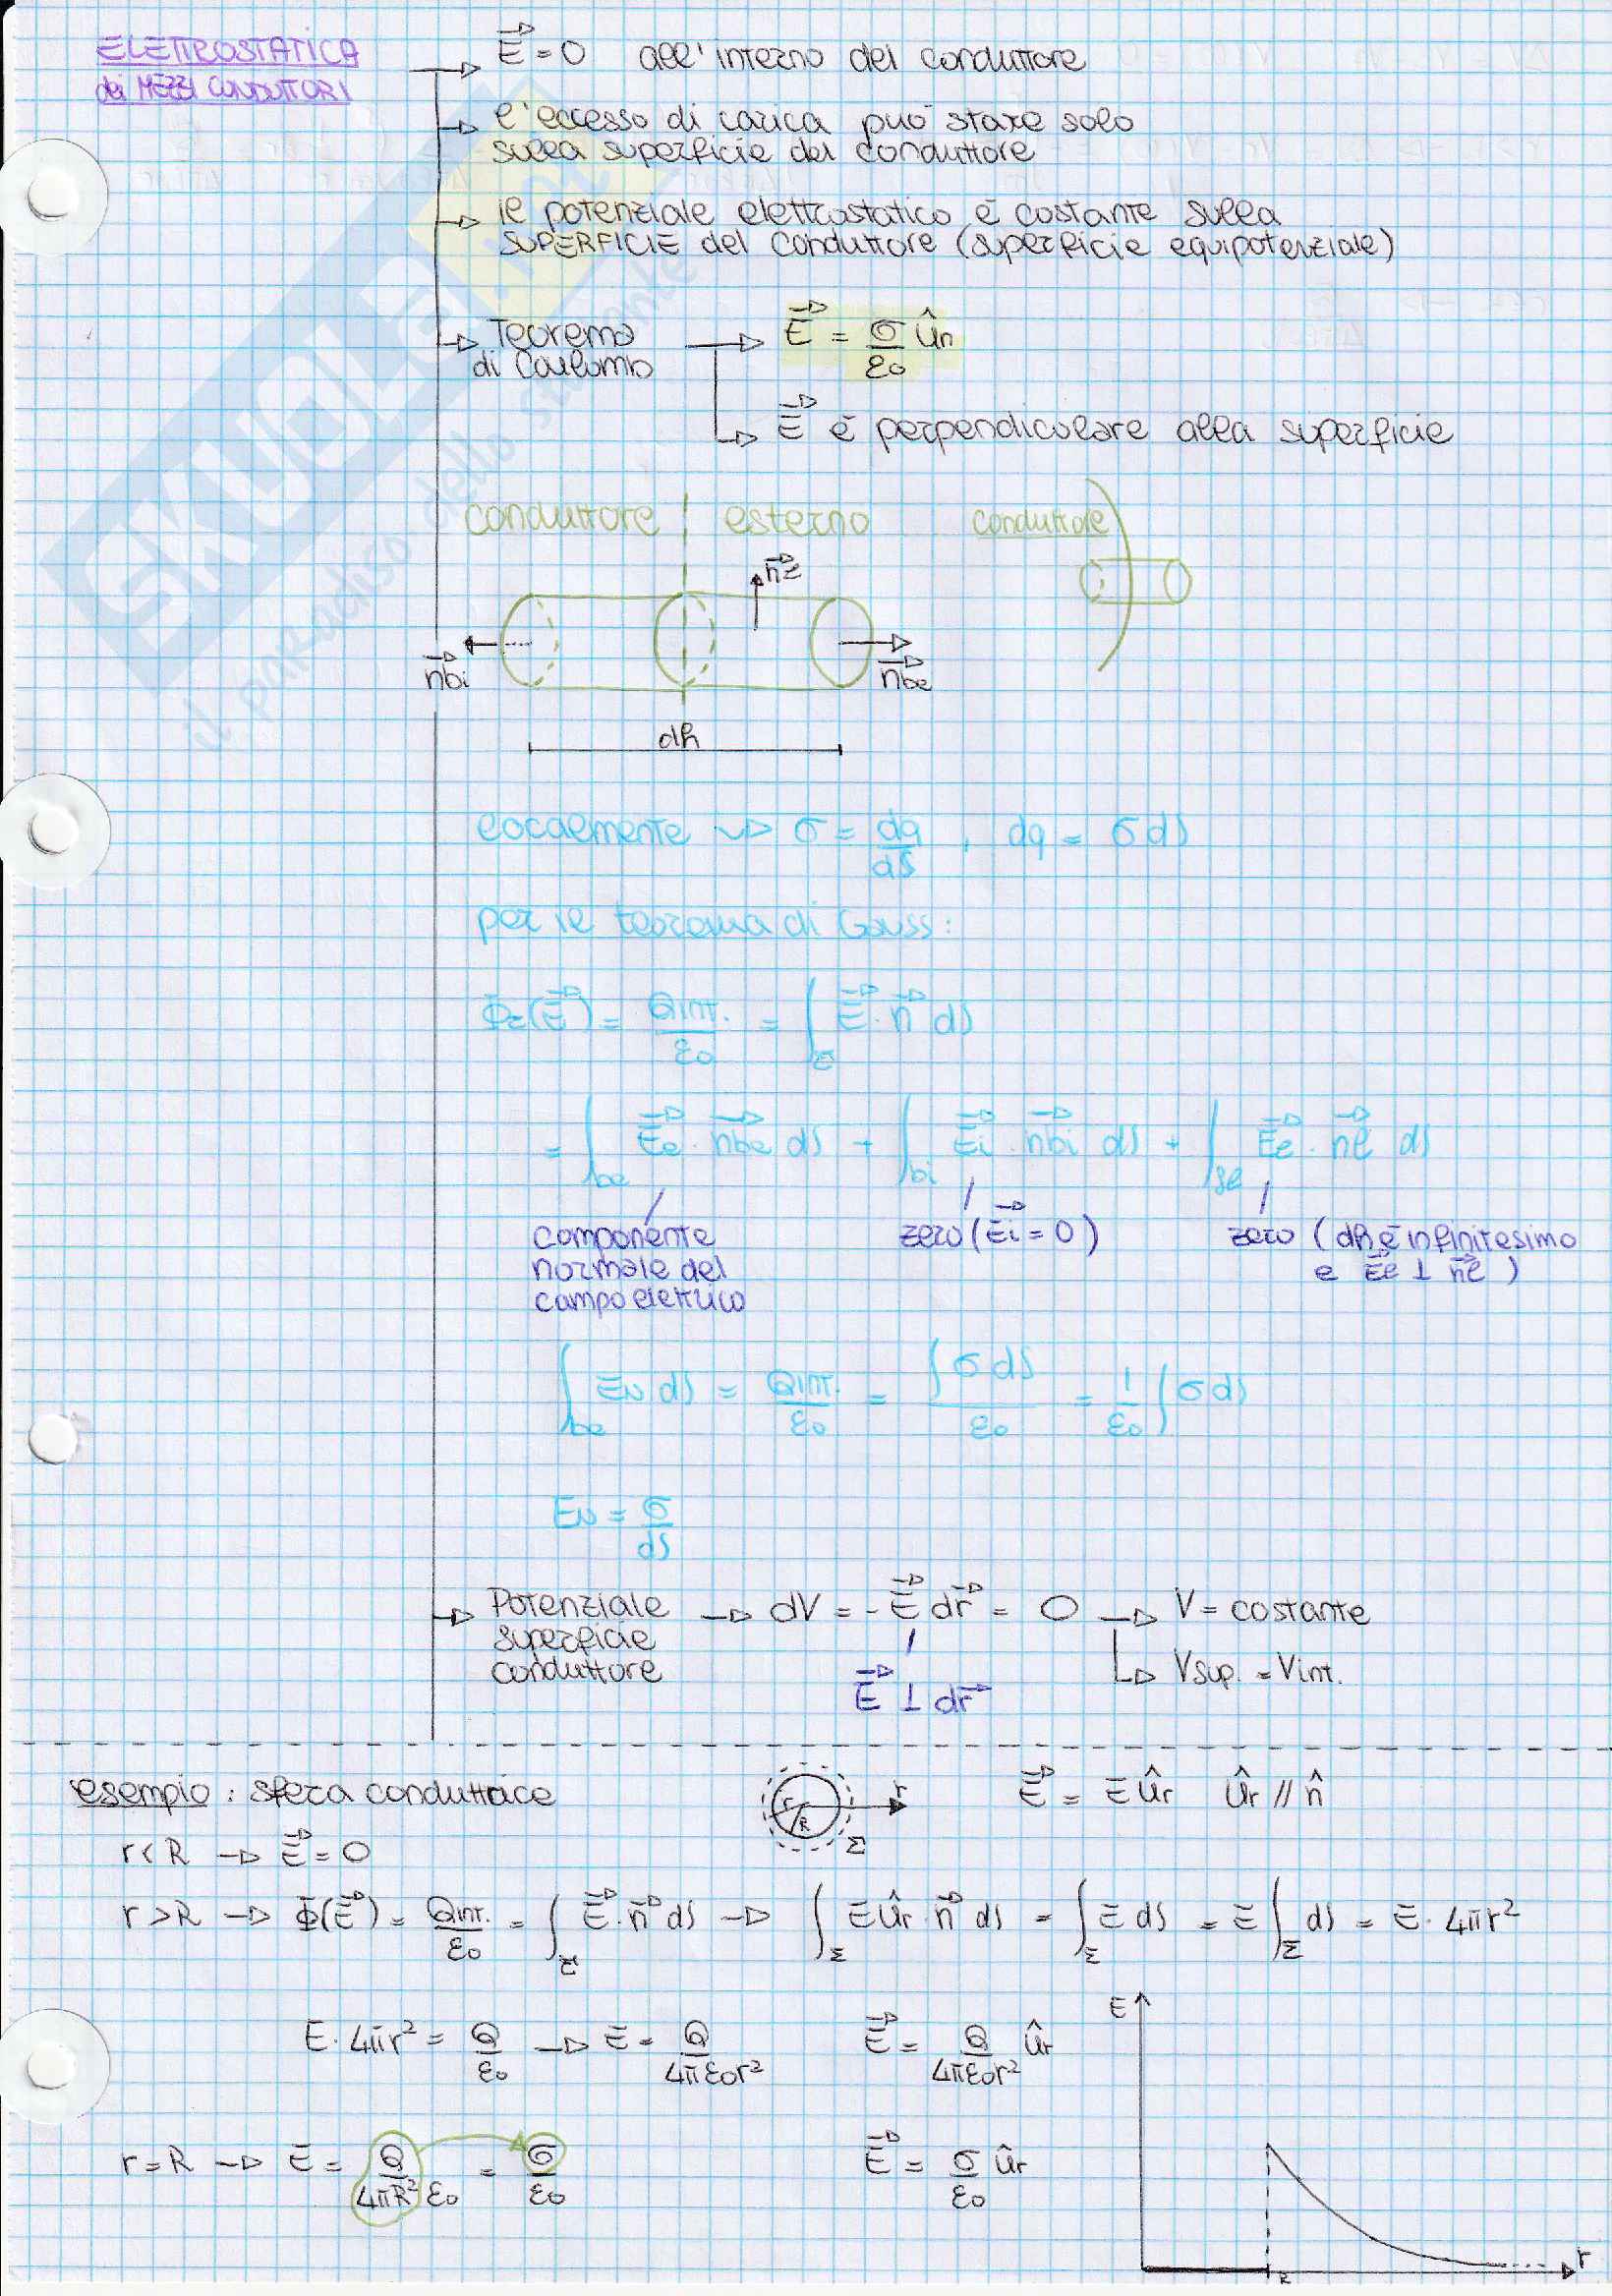 ELETTROSTATICA
dei MEZZI CONDUTTORI
E⃗ = 0 all'interno del conduttore
l'eccesso di carica può stare solo
sulla superficie del conduttore
il potenziale elettrostatico è costante sulla
SUPERFICIE del conduttore (superficie equipotenziale)
Teorema di Coulomb → E⃗ = σ/ε₀ ûn
E⃗ è perpendicolare alla superficie
conduttore esterno conduttore
n⃗ℓ
n⃗bi n⃗be
dh
localmente → σ = dq/dS , dq = σ dS
per il teorema di Gauss:
Φ_Σ(E⃗) = Qint./ε₀ = ∫_Σ E⃗ · n⃗ dS
= ∫_be E⃗e · n⃗be dS + ∫_bi E⃗i · n⃗bi dS + ∫_Sℓ E⃗e · n⃗ℓ dS
componente normale del campo elettrico
zero (E⃗i = 0)
zero (dh è infinitesimo e E⃗e ⊥ n⃗ℓ)
∫_be EN dS = Qint./ε₀ = ∫σ dS/ε₀ = 1/ε₀ ∫σ dS
EN = σ/dS
Potenziale superficie conduttore → dV = - E⃗ dr⃗ = 0 → V = costante
Vsup. = Vint.
E⃗ ⊥ dr⃗
esempio : sfera conduttrice
r R Σ r
E⃗ = E ûr ûr // n̂
r < R → E⃗ = 0
r > R → Φ(E⃗) = Qint./ε₀ = ∫_Σ E⃗ · n⃗ dS → ∫_Σ E ûr · n⃗ dS = ∫_Σ E dS = E ∫_Σ dS = E · 4πr²
E · 4πr² = Q/ε₀ → E = Q/4πε₀r² E⃗ = Q/4πε₀r² ûr
r = R → E = Q/4πR²ε₀ = σ/ε₀ E⃗ = σ/ε₀ ûr
E
R r
SKUOLA.net
il paradiso dello studente